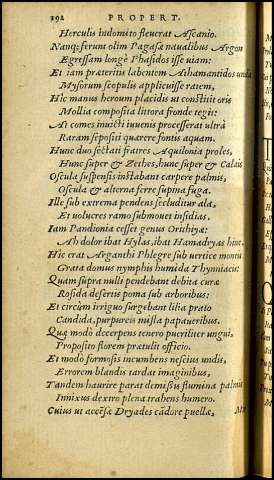 192 PROPERT.
Herculis indomito fleuerat Ascanio.
Nanq; ferunt olim Pagasæ naualibus Argon
Egressam longè Phasidos isse uiam:
Et iam præteritis labentem Athamantidos undis
Mysorum scopulis applicuisse ratem,
Hic manus heroum placidis ut constitit oris
Mollia composita littora fronde tegit:
At comes inuicti iuuenis processerat ultra
Raram sepositi quærere fontis aquam.
Hunc duo sectati fratres Aquilonia proles,
Hunc super & Zethes, hunc super & Calais
Oscula suspensis instabant carpere palmis,
Oscula & alterna ferre supina fuga.
Ille sub extrema pendens secluditur ala,
Et uolucres ramo submouet insidias.
Iam Pandioniæ cesset genus Orithyiæ:
Ah dolor ibat Hylas, ibat Hamadryas hinc.
Hic erat Arganthi Phlegre sub uertice montis
Grata domus nymphis humida Thynniacis:
Quam supra nulli pendebant debita curæ
Roscida desertis poma sub arboribus:
Et circum irriguo surgebant lilia prato
Candida, purpureis mista papaueribus.
Quæ modò decerpens tenero pueriliter ungui,
Proposito florem prætulit officio.
Et modò formosis incumbens nescius undis,
Errorem blandis tardat imaginibus,
Tandem haurire parat demissis flumina palmis
Innixus dextro plena trahens humero.
Cuius ut accensæ Dryades cādore puellæ,